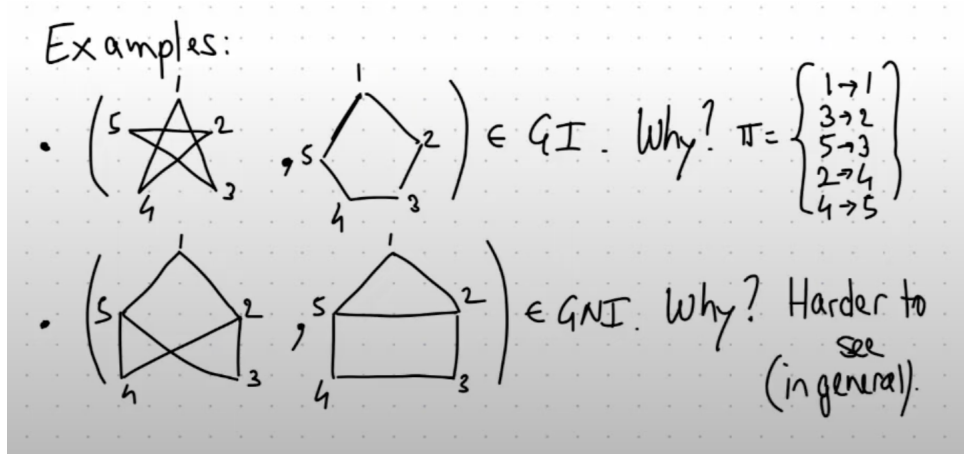 Examples:
• ( 1 2 3 4 5 , 1 2 3 4 5 ) ∈ GI. Why? π = { 1→1
3→2
5→3
2→4
4→5 }
• ( 1 2 3 4 5 , 1 2 3 4 5 ) ∈ GNI. Why? Harder to
see
(in general).